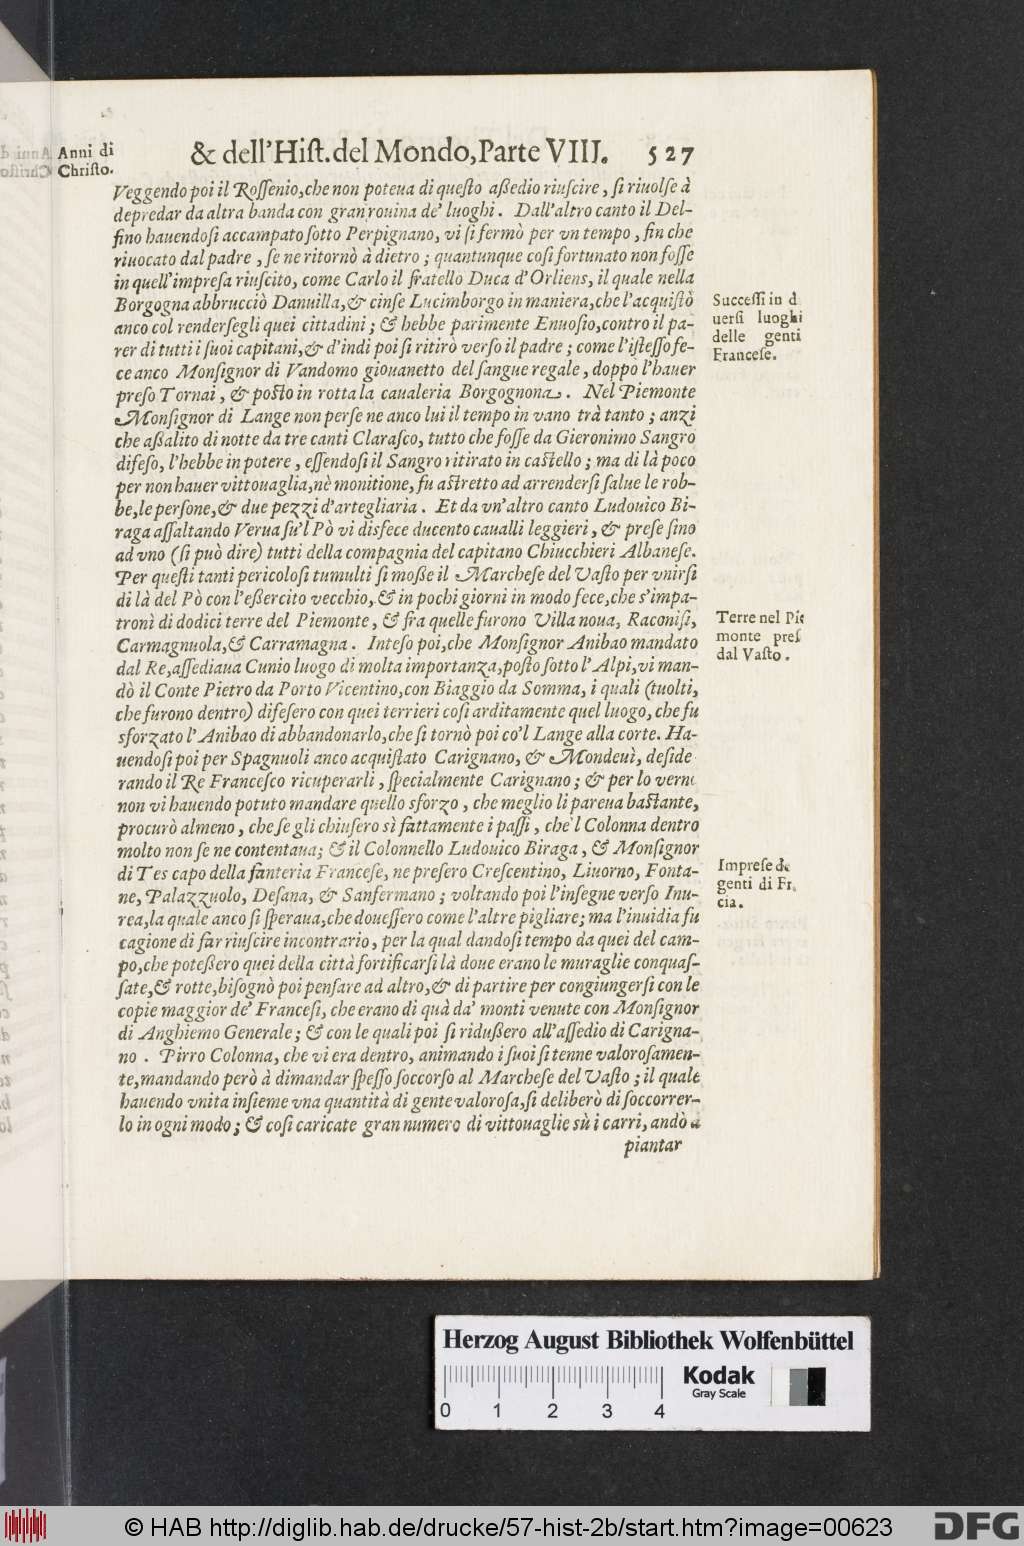 Anni di
Chriſto.
& dell'Hiſt. del Mondo, Parte VIII. 527
Veggendo poi il Roſſenio, che non poteua di queſto aßedio riuſcire, ſi riuolſe à
depredar da altra banda con gran rouina de' luoghi. Dall'altro canto il Del-
fino hauendoſi accampato ſotto Perpignano, vi ſi fermò per vn tempo, fin che
riuocato dal padre, ſe ne ritornò à dietro; quantunque coſi fortunato non foſſe
in quell'impreſa riuſcito, come Carlo il fratello Duca d'Orliens, il quale nella
Borgogna abbrucciò Danuilla, & cinſe Lucimborgo in maniera, che l'acquiſtò
anco col renderſegli quei cittadini; & hebbe parimente Enuoſio, contro il pa-
rer di tutti i ſuoi capitani, & d'indi poi ſi ritirò verſo il padre; come l'iſteſſo fe-
ce anco Monſignor di Vandomo giouanetto del ſangue regale, doppo l'hauer
preſo Tornai, & poſto in rotta la caualeria Borgognona. Nel Piemonte
Monſignor di Lange non perſe ne anco lui il tempo in vano trà tanto; anzi
che aßalito di notte da tre canti Claraſco, tutto che foſſe da Gieronimo Sangro
difeſo, l'hebbe in potere, eſſendoſi il Sangro ritirato in caſtello; ma di là poco
per non hauer vittouaglia, nè monitione, fu aſtretto ad arrenderſi ſalue le rob-
be, le perſone, & due pezzi d'artegliaria. Et da vn'altro canto Ludouico Bi-
raga aſſaltando Verua ſu'l Pò vi disfece ducento caualli leggieri, & preſe ſino
ad vno (ſi può dire) tutti della compagnia del capitano Chiucchieri Albaneſe.
Per queſti tanti pericoloſi tumulti ſi moße il Marcheſe del Vaſto per vnirſi
di là del Pò con l'eßercito vecchio, & in pochi giorni in modo fece, che s'impa-
tronì di dodici terre del Piemonte, & fra quelle furono Villa noua, Raconiſi,
Carmagnuola, & Carramagna. Inteſo poi, che Monſignor Anibao mandato
dal Re, aſſediaua Cunio luogo di molta importanza, poſto ſotto l'Alpi, vi man-
dò il Conte Pietro da Porto Vicentino, con Biaggio da Somma, i quali (tuolti,
che furono dentro) difeſero con quei terrieri coſi arditamente quel luogo, che fu
sforzato l'Anibao di abbandonarlo, che ſi tornò poi co'l Lange alla corte. Ha-
uendoſi poi per Spagnuoli anco acquiſtato Carignano, & Mondeuì, deſide
rando il Re Franceſco ricuperarli, ſpecialmente Carignano; & per lo verno
non vi hauendo potuto mandare quello sforzo, che meglio li pareua baſtante,
procurò almeno, che ſe gli chiuſero sì fattamente i paſſi, che'l Colonna dentro
molto non ſe ne contentaua; & il Colonnello Ludouico Biraga, & Monſignor
di Tes capo della fanteria Franceſe, ne preſero Creſcentino, Liuorno, Fonta-
ne, Palazzuolo, Deſana, & Sanfermano; voltando poi l'inſegne verſo Inu-
rea, la quale anco ſi ſperaua, che doueſſero come l'altre pigliare; ma l'inuidia fu
cagione di far riuſcire incontrario, per la qual dandoſi tempo da quei del cam-
po, che poteßero quei della città fortificarſi là doue erano le muraglie conquaſ-
ſate, & rotte, biſognò poi penſare ad altro, & di partire per congiungerſi con le
copie maggior de' Franceſi, che erano di quà da' monti venute con Monſignor
di Anghiemo Generale; & con le quali poi ſi ridußero all'aſſedio di Carigna-
no. Pirro Colonna, che vi era dentro, animando i ſuoi ſi tenne valoroſamen-
te, mandando però à dimandar ſpeſſo ſoccorſo al Marcheſe del Vaſto; il quale
hauendo vnita inſieme vna quantità di gente valoroſa, ſi deliberò di ſoccorrer-
lo in ogni modo; & coſi caricate gran numero di vittouaglie sù i carri, andò à
piantar
Succeſſi in d
uerſi luoghi
delle genti
Franceſe.
Terre nel Pie
monte preſ
dal Vaſto.
Impreſe de
genti di Fr
cia.
Herzog August Bibliothek Wolfenbüttel
Kodak
Gray Scale
0 1 2 3 4
© HAB http://diglib.hab.de/drucke/57-hist-2b/start.htm?image=00623
DFG